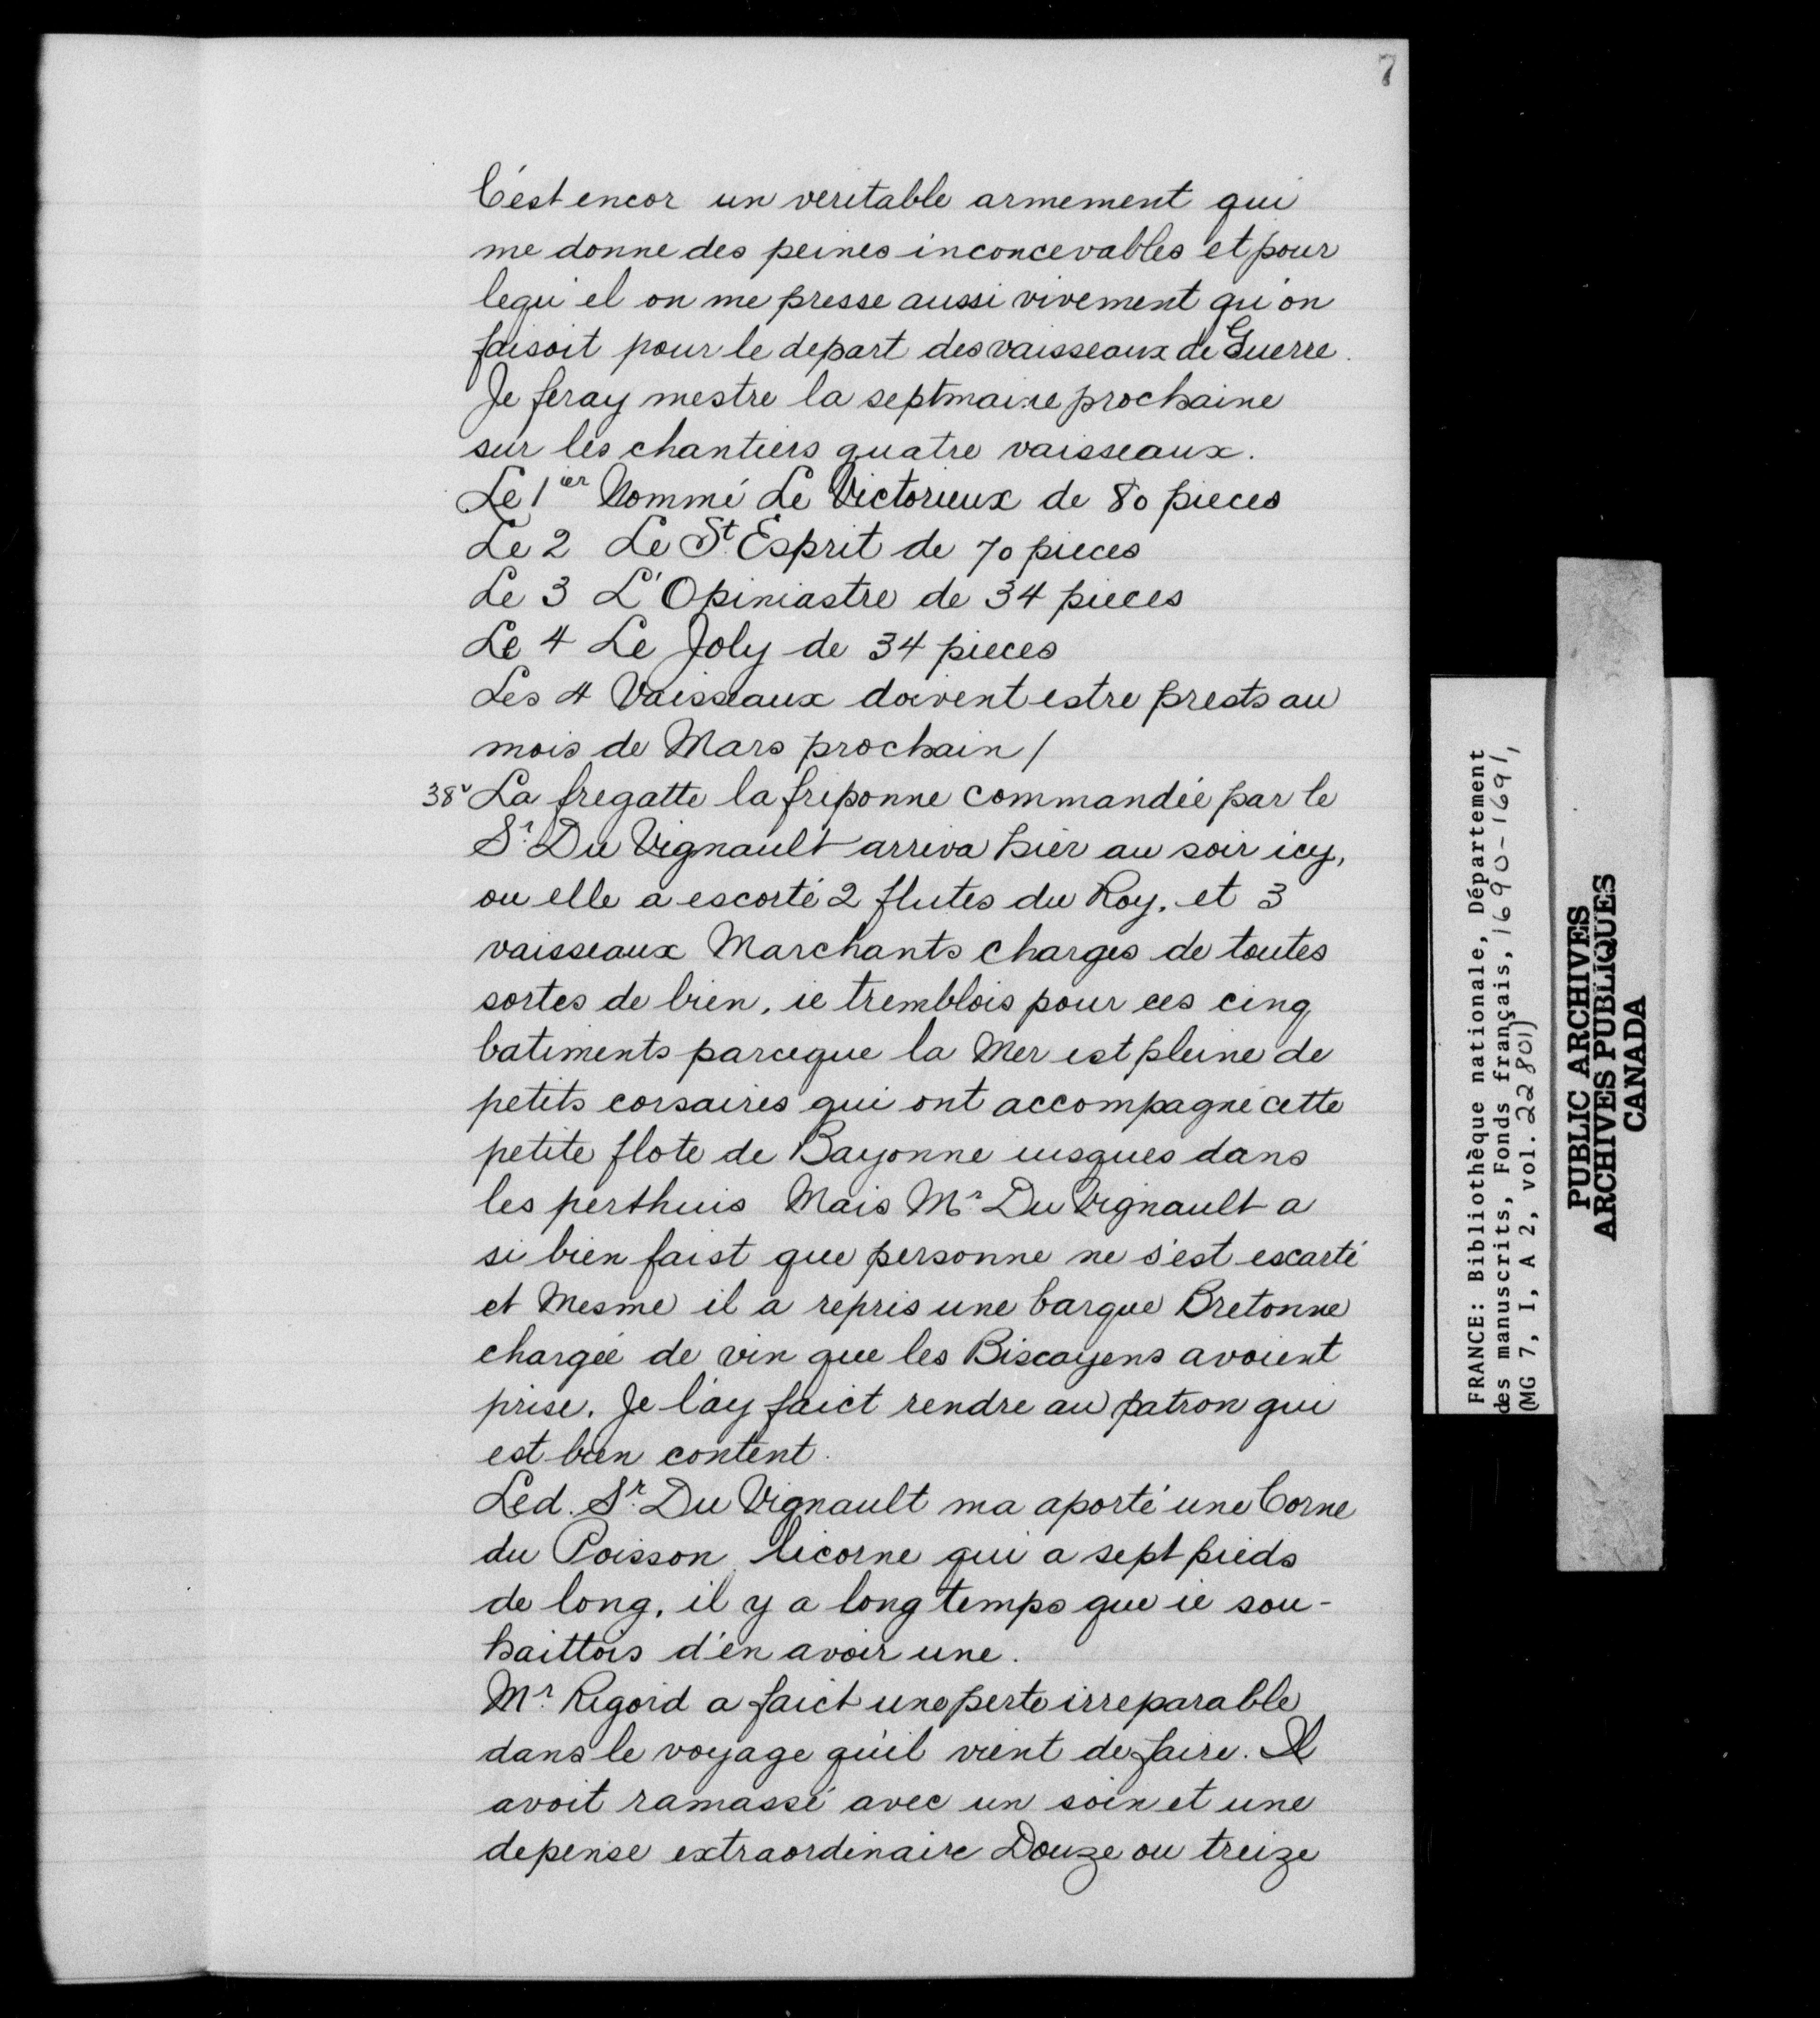 7
C'est encor un veritable armement qui
me donne des peines inconcevables et pour
lequ'el on me presse aussi vivement qu'on
faisoit pour le depart des vaisseaux de Guerre.
Je feray mestre la septmaine prochaine
sur les chantiers quatre vaisseaux.
Le 1ier Nommé Le Victorieux de 80 pieces
Le 2 Le St. Esprit de 70 pieces
Le 3 L'Opiniastre de 34 pieces
Le 4 Le Joly de 34 pieces
Les 4 Vaisseaux doivent estre prests au
mois de Mars prochain /
38v La fregatte la friponne commandée par le
Sr. Du Vignault arriva hier au soir icy,
ou elle a escorté 2 flutes du Roy, et 3
vaisseaux Marchants charges de toutes
sortes de bien, ie tremblois pour ces cinq
batiments parceque la Mer est pleine de
petits corsaires qui ont accompagné cette
petite flote de Bayonne iusques dans
les perthuis Mais Mr Du Vignault a
si bien faist que personne ne s'est escarté
et Mesme il a repris une barque Bretonne
chargée de vin que les Biscayens avoient
prise. Je l'ay faict rendre au patron qui
est bien content.
Led. Sr. Du Vignault ma aporté une Corne
du Poisson licorne qui a sept pieds
de long, il y a long temps que ie sou-
haittois d'en avoir une.
Mr. Rigord a faict une perte irreparable
dans le voyage qu'il vient de faire. Il
avoit ramassé avec un soin et une
depense extraordinaire Douze ou treize
FRANCE: Bibliothèque nationale, Département
des manuscrits, Fonds français, 1690-1691,
(MG 7, I, A 2, vol. 22801)
PUBLIC ARCHIVES
ARCHIVES PUBLIQUES
CANADA